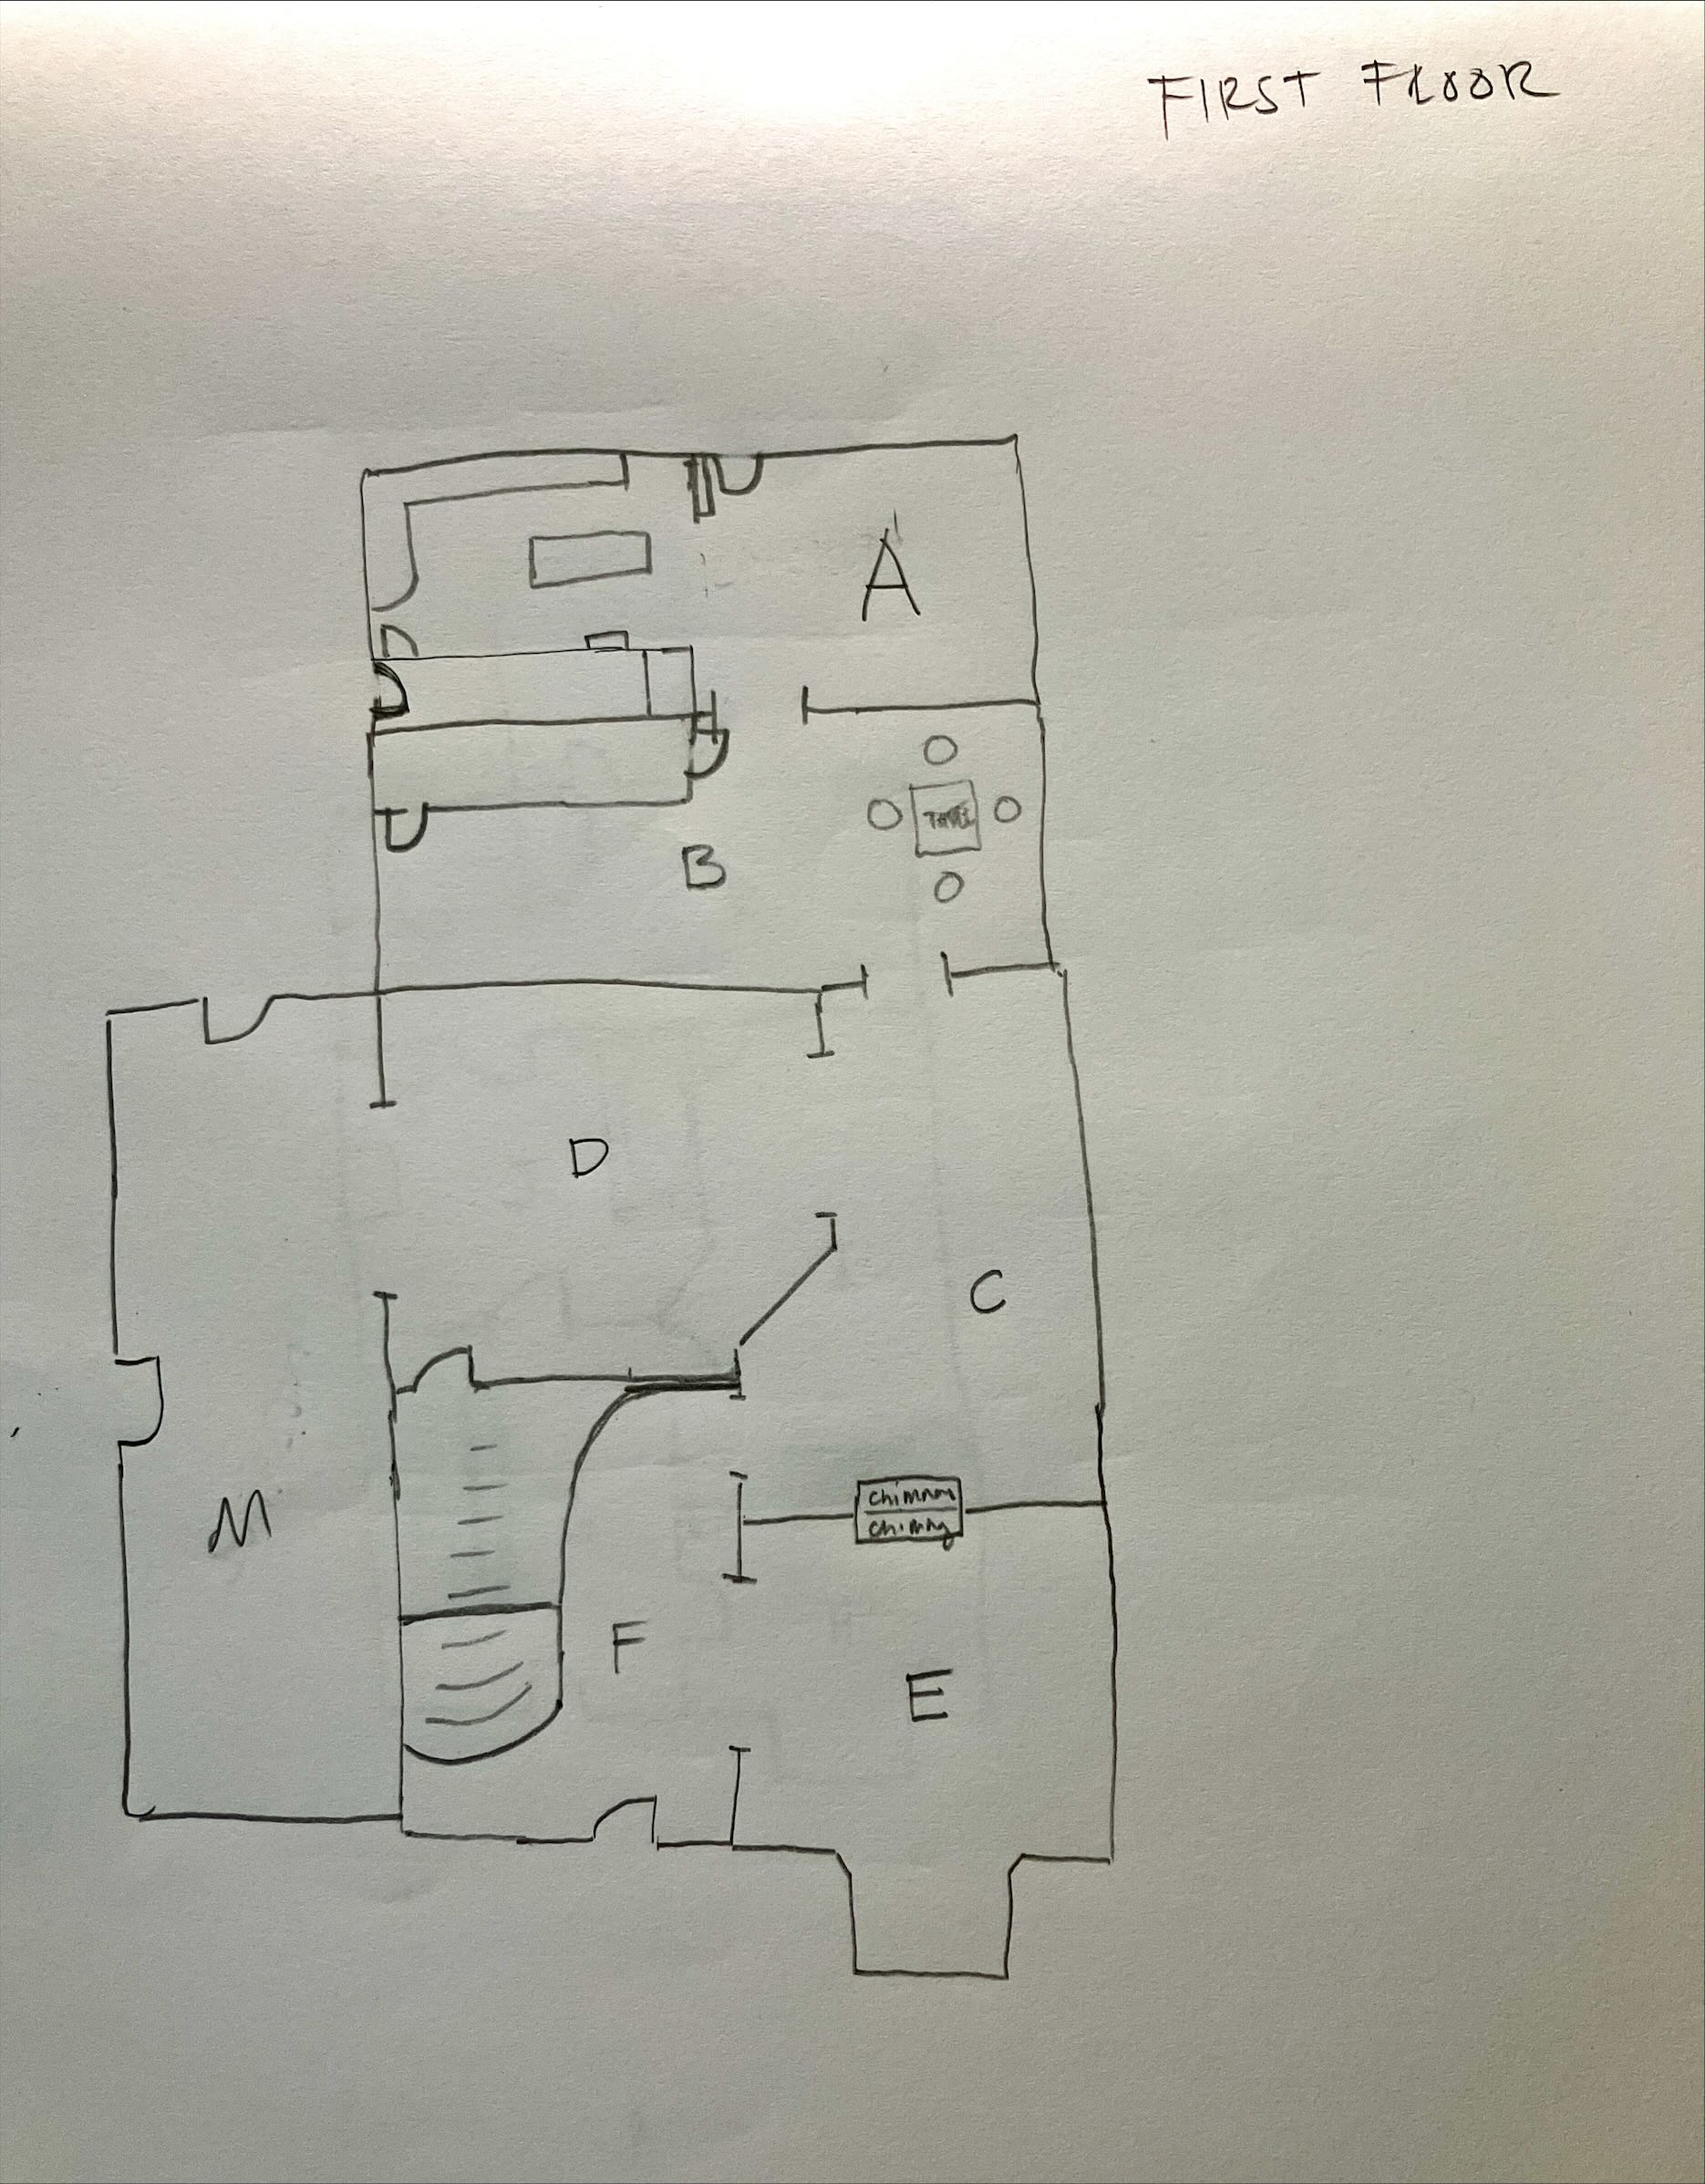 FIRST FLOOR
A
TABLE
B
D
C
chimney
chimny
M
F
E